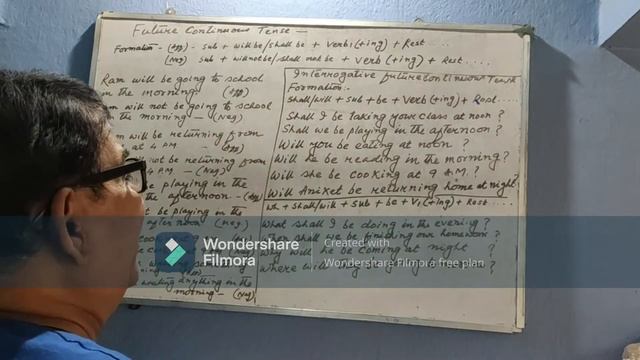 Future Continuous Tense —
Formation - (Aff) - Sub + will be/shall be + verb1(+ing) + Rest....
(Neg) Sub + will not be/shall not be + verb (+ing) + Rest....
Ram will be going to school
in the morning. (Aff)
will not be going to school
in the morning — (Neg)
will be returning from
at 4 P.M — (Aff)
not be returning from
4 P.M. — (Neg)
be playing in the
the afternoon — (Aff)
not be playing in the
afternoon (Neg)
anything in the
morning — (Neg)
Interrogative future Continuous Tense
Formation:-
Shall/will + sub + be + verb1(+ing) + Rest....
Shall I be taking your class at noon?
Shall we be playing in the afternoon?
Will you be eating at noon?
Will he be reading in the morning?
Will she be cooking at 9 A.M.?
Will Aniket be returning home at night?
Wh + Shall/will + sub + be + V1(+ing) + Rest....
What shall I be doing in the evening?
shall we be finishing our homework?
Why will he be coming at night?
Where will
Wondershare
Filmora
Created with
Wondershare Filmora free plan